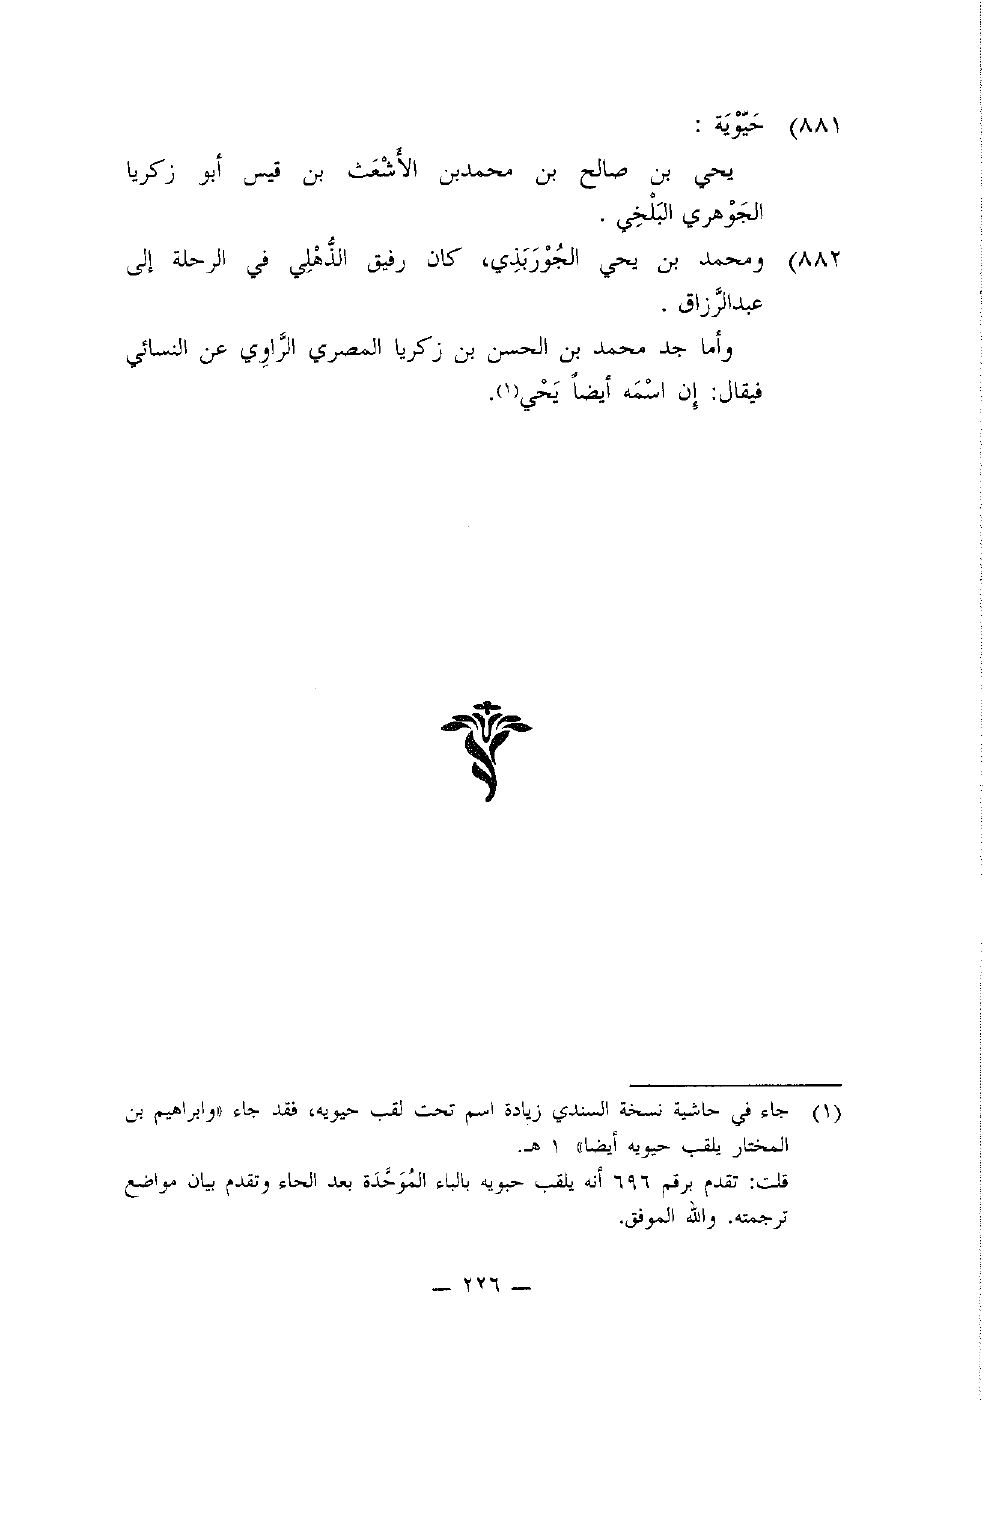 ٨٨١) حَيّوْيَة :
يحي بن صالح بن محمدبن الأَشْعَث بن قيس أبو زكريا
الجَوْهري البَلْخِي .
٨٨٢) ومحمد بن يحي الجُوْرَبَذِي، كان رفيق الذُّهْلِي في الرحلة إلى
عبدالرَّزاق .
وأما جد محمد بن الحسن بن زكريا المصري الرَّاوِي عن النسائي
فيقال: إِن اسْمَه أيضاً يَحْي(١).
(١) جاء في حاشية نسخة السندي زيادة اسم تحت لقب حيويه، فقد جاء «وابراهيم بن
المختار يلقب حيويه أيضا» ١ هـ.
قلت: تقدم برقم ٦٩٦ أنه يلقب حبويه بالباء المُوَحَّدَة بعد الحاء وتقدم بيان مواضع
ترجمته. والله الموفق.
— ٢٢٦ —